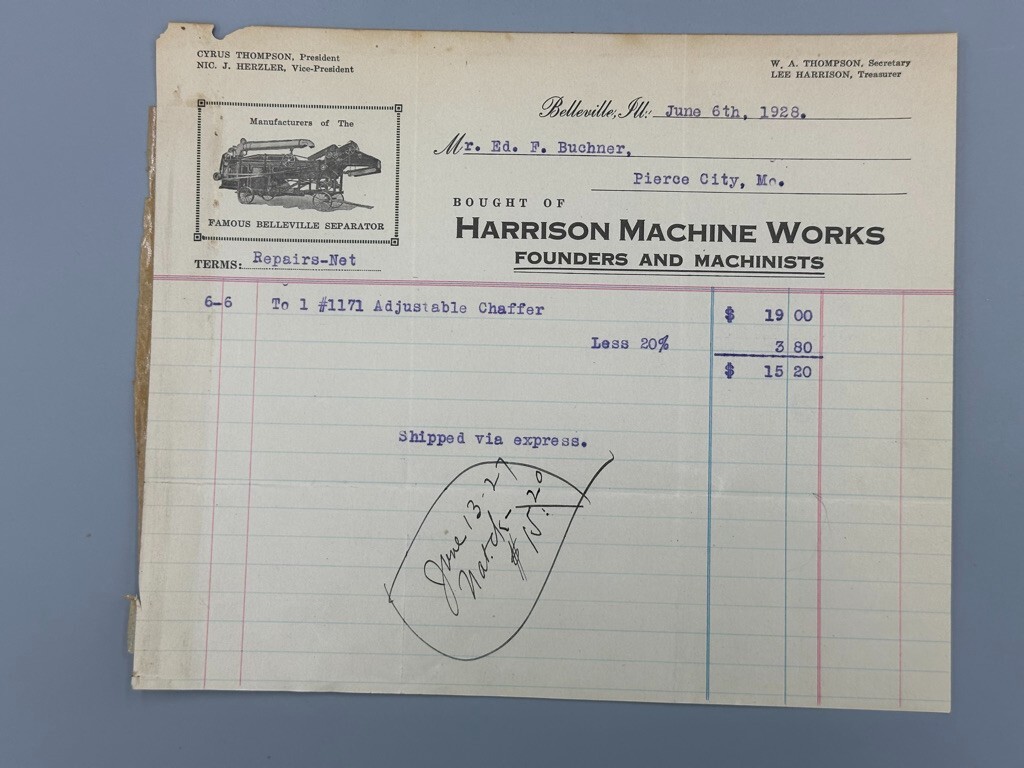 CYRUS THOMPSON, President
NIC. J. HERZLER, Vice-President
W. A. THOMPSON, Secretary
LEE HARRISON, Treasurer
Manufacturers of The
FAMOUS BELLEVILLE SEPARATOR
Belleville, Ill: June 6th, 1928.
Mr. Ed. F. Buchner,
Pierce City, Mo.
BOUGHT OF
HARRISON MACHINE WORKS
FOUNDERS AND MACHINISTS
TERMS: Repairs-Net
6-6 To 1 #1171 Adjustable Chaffer $ 19 00
Less 20% 3 80
$ 15 20
Shipped via express.
June 13-27
Nat. ck-
$15.20